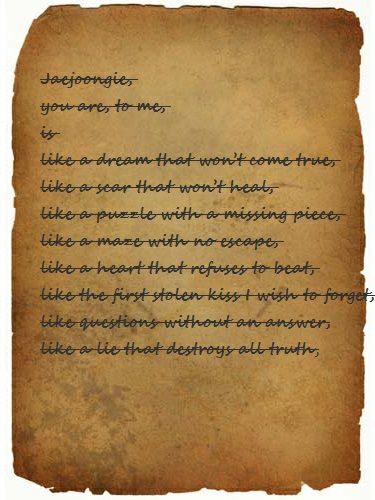 Jaejoongie,
you are, to me,
is
like a dream that won't come true,
like a scar that won't heal,
like a puzzle with a missing piece,
like a maze with no escape,
like a heart that refuses to beat,
like the first stolen kiss I wish to forget,
like questions without an answer,
like a lie that destroys all truth,